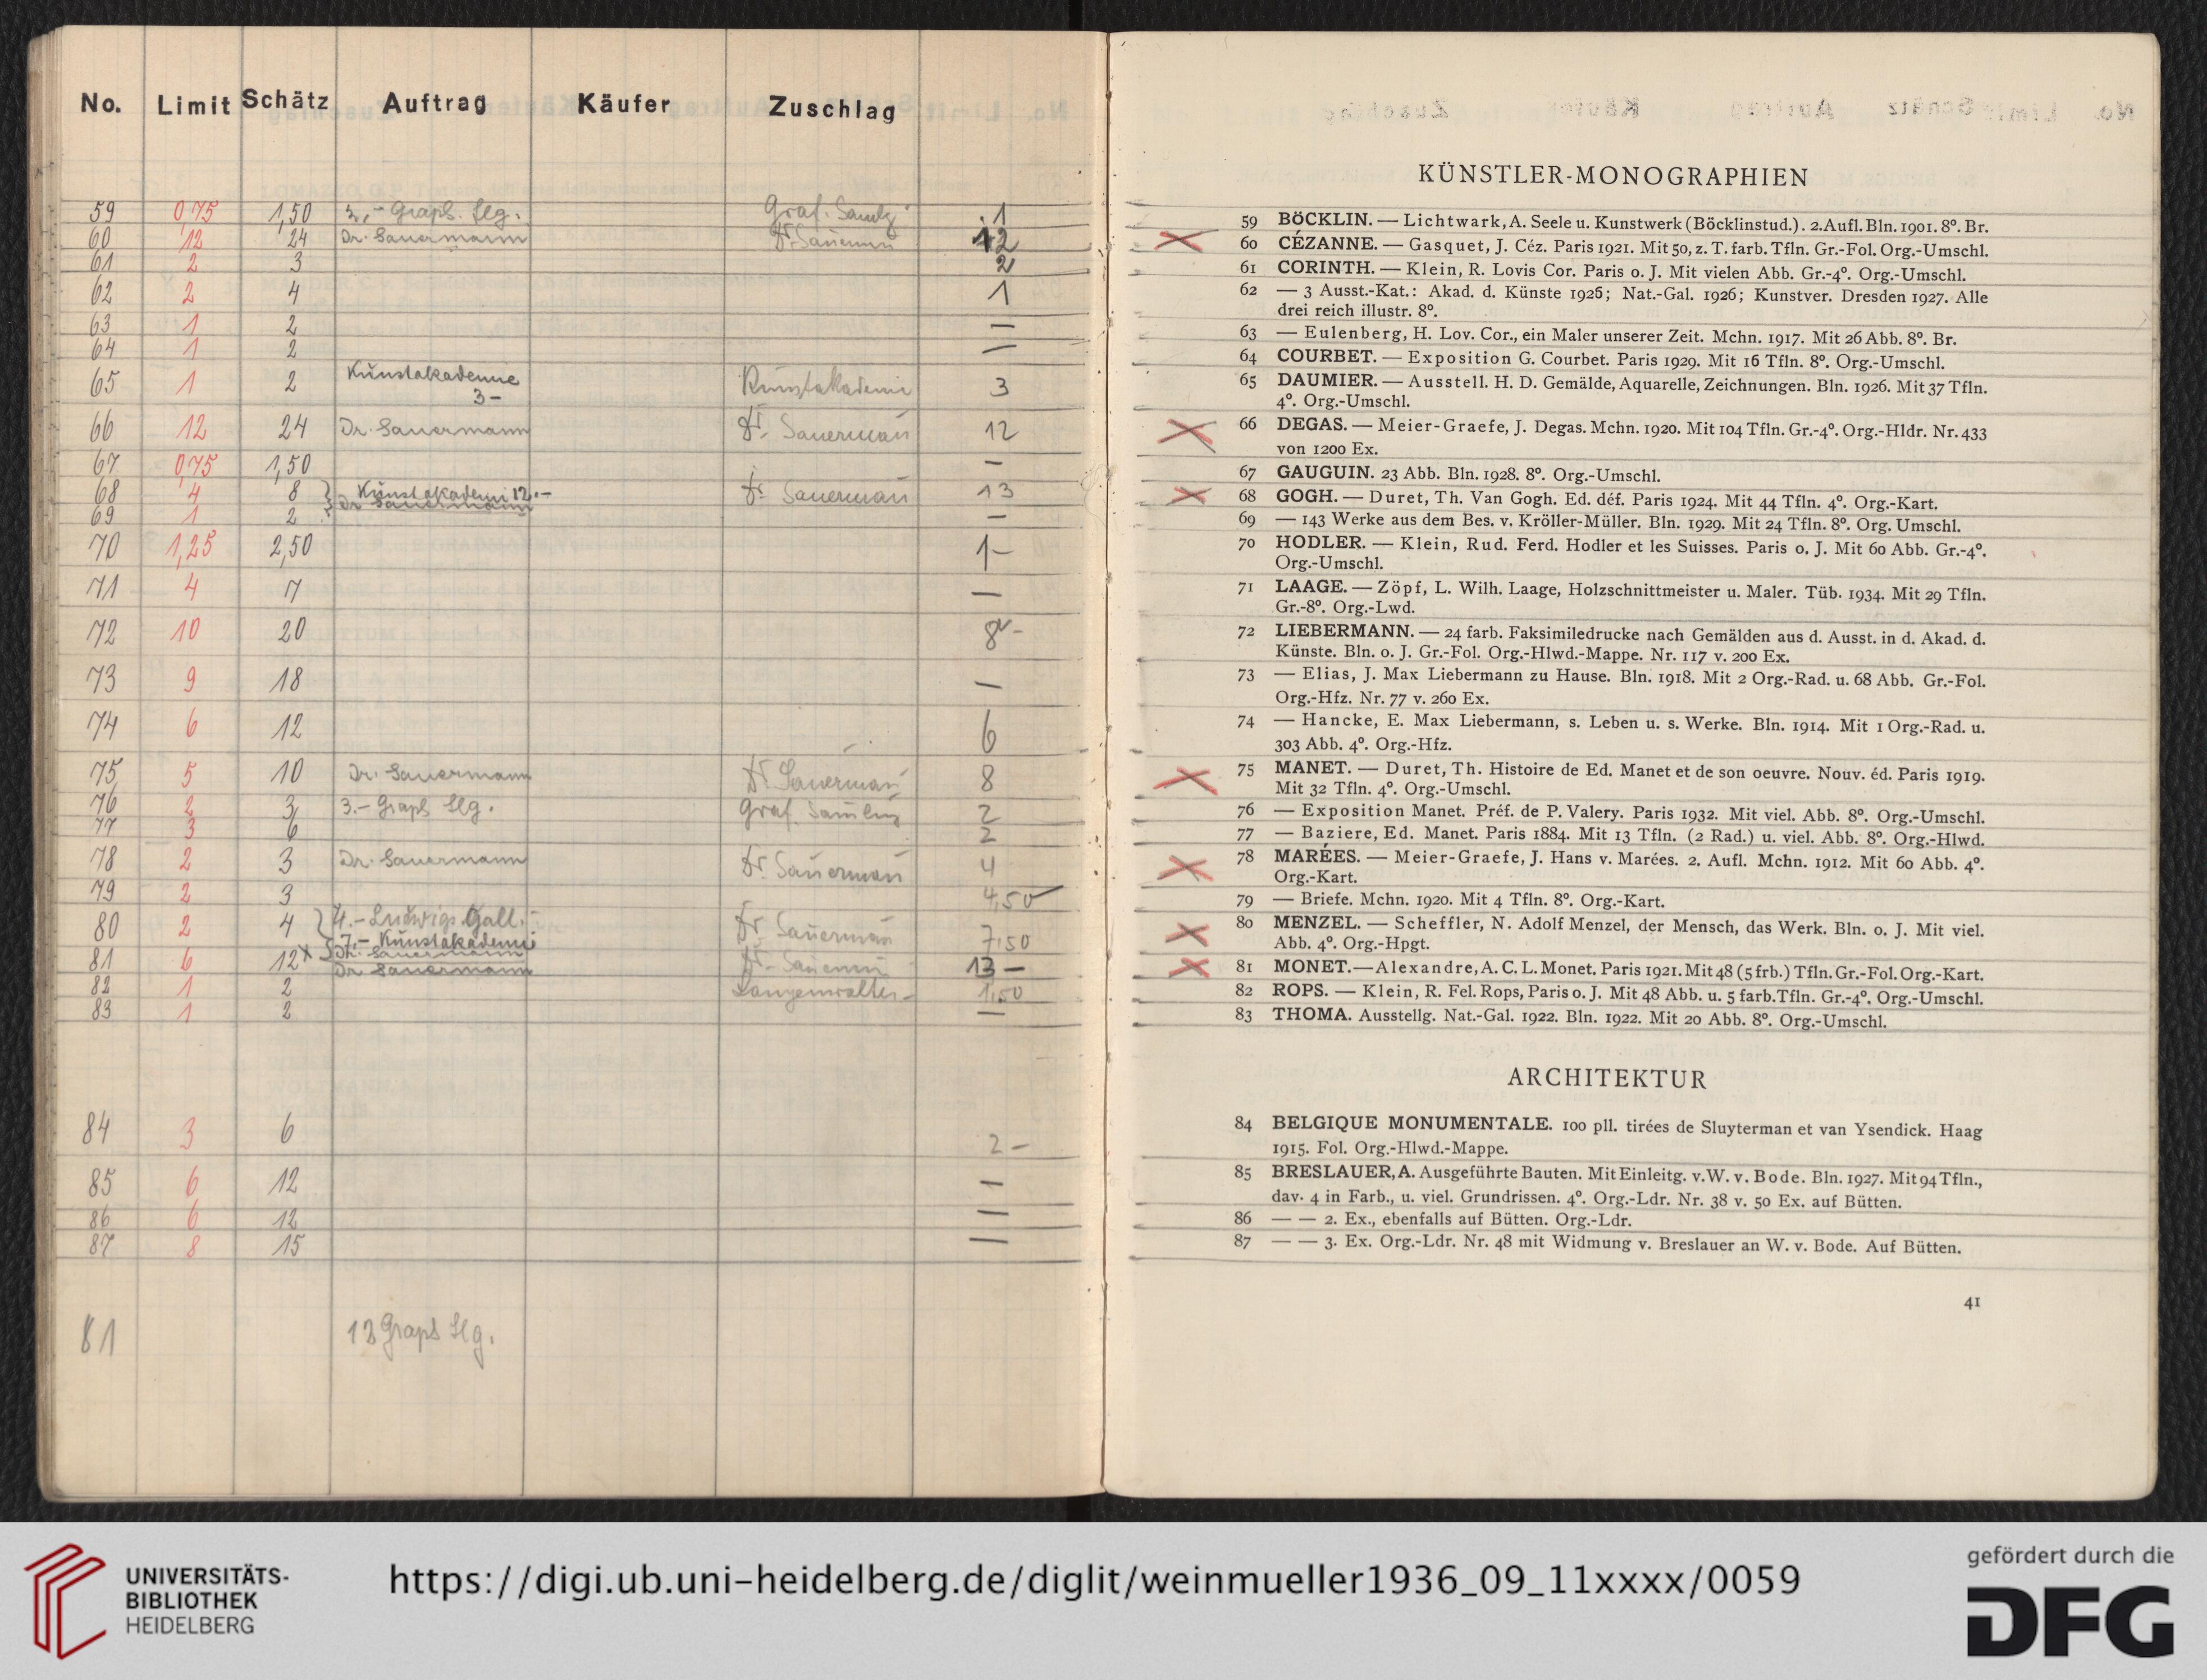 No. Limit Schätz Auftrag Käufer Zuschlag
59 0,75 1,50 3,- Graph. Slg. Graf. Samlg 1
60 12 24 Dr. Sauermann Dr. Sauerman 12
61 2 3 2
62 2 4 1
63 1 2 —
64 1 2 —
65 1 2 Kunstakademie 3- Kunstakademie 3
66 12 24 Dr. Sauermann Dr. Sauerman 12
67 0,75 1,50 —
68 4 8 Kunstakademi 12.- Dr. Sauerman 13
69 1 2 Dr Sauermann —
70 1,25 2,50 1-
71 4 7 —
72 10 20 8-
73 9 18 —
74 6 12 6
75 5 10 Dr. Sauermann Dr. Sauerman 8
76 2 3 3.- Graph Slg. Graf. Samlung 2
77 3 6 2
78 2 3 Dr. Sauermann Dr. Sauerman 4
79 2 3 4,50
80 2 4 4.- Ludwigs Gall.- Dr Sauerman 7.50
7.- Kunstakademie
Dr. Sauermann
81 6 12 x Dr Sauermann Dr. Sauerman 13 —
82 1 2 1,50
83 1 2 —
84 3 6 2 -
85 6 12 —
86 6 12 —
87 8 15 —
81 13 Graph Slg.
KÜNSTLER-MONOGRAPHIEN
59 BÖCKLIN. — Lichtwark, A. Seele u. Kunstwerk (Böcklinstud.). 2. Aufl. Bln. 1901. 8⁰. Br.
60 CÉZANNE. — Gasquet, J. Céz. Paris 1921. Mit 50, z. T. farb. Tfln. Gr.-Fol. Org.-Umschl.
61 CORINTH. — Klein, R. Lovis Cor. Paris o. J. Mit vielen Abb. Gr.-4⁰. Org.-Umschl.
62 — 3 Ausst.-Kat.: Akad. d. Künste 1926; Nat.-Gal. 1926; Kunstver. Dresden 1927. Alle
drei reich illustr. 8⁰.
63 — Eulenberg, H. Lov. Cor., ein Maler unserer Zeit. Mchn. 1917. Mit 26 Abb. 8⁰. Br.
64 COURBET. — Exposition G. Courbet. Paris 1929. Mit 16 Tfln. 8⁰. Org.-Umschl.
65 DAUMIER. — Ausstell. H. D. Gemälde, Aquarelle, Zeichnungen. Bln. 1926. Mit 37 Tfln.
4⁰. Org.-Umschl.
66 DEGAS. — Meier-Graefe, J. Degas. Mchn. 1920. Mit 104 Tfln. Gr.-4⁰. Org.-Hldr. Nr. 433
von 1200 Ex.
67 GAUGUIN. 23 Abb. Bln. 1928. 8⁰. Org.-Umschl.
68 GOGH. — Duret, Th. Van Gogh. Ed. déf. Paris 1924. Mit 44 Tfln. 4⁰. Org.-Kart.
69 — 143 Werke aus dem Bes. v. Kröller-Müller. Bln. 1929. Mit 24 Tfln. 8⁰. Org. Umschl.
70 HODLER. — Klein, Rud. Ferd. Hodler et les Suisses. Paris o. J. Mit 60 Abb. Gr.-4⁰.
Org.-Umschl.
71 LAAGE. — Zöpf, L. Wilh. Laage, Holzschnittmeister u. Maler. Tüb. 1934. Mit 29 Tfln.
Gr.-8⁰. Org.-Lwd.
72 LIEBERMANN. — 24 farb. Faksimiledrucke nach Gemälden aus d. Ausst. in d. Akad. d.
Künste. Bln. o. J. Gr.-Fol. Org.-Hlwd.-Mappe. Nr. 117 v. 200 Ex.
73 — Elias, J. Max Liebermann zu Hause. Bln. 1918. Mit 2 Org.-Rad. u. 68 Abb. Gr.-Fol.
Org.-Hfz. Nr. 77 v. 260 Ex.
74 — Hancke, E. Max Liebermann, s. Leben u. s. Werke. Bln. 1914. Mit 1 Org.-Rad. u.
303 Abb. 4⁰. Org.-Hfz.
75 MANET. — Duret, Th. Histoire de Ed. Manet et de son oeuvre. Nouv. éd. Paris 1919.
Mit 32 Tfln. 4⁰. Org.-Umschl.
76 — Exposition Manet. Préf. de P. Valery. Paris 1932. Mit viel. Abb. 8⁰. Org.-Umschl.
77 — Baziere, Ed. Manet. Paris 1884. Mit 13 Tfln. (2 Rad.) u. viel. Abb. 8⁰. Org.-Hlwd.
78 MARÉES. — Meier-Graefe, J. Hans v. Marées. 2. Aufl. Mchn. 1912. Mit 60 Abb. 4⁰.
Org.-Kart.
79 — Briefe. Mchn. 1920. Mit 4 Tfln. 8⁰. Org.-Kart.
80 MENZEL. — Scheffler, N. Adolf Menzel, der Mensch, das Werk. Bln. o. J. Mit viel.
Abb. 4⁰. Org.-Hpgt.
81 MONET.—Alexandre, A. C. L. Monet. Paris 1921. Mit 48 (5 frb.) Tfln. Gr.-Fol. Org.-Kart.
82 ROPS. — Klein, R. Fel. Rops, Paris o. J. Mit 48 Abb. u. 5 farb. Tfln. Gr.-4⁰. Org.-Umschl.
83 THOMA. Ausstellg. Nat.-Gal. 1922. Bln. 1922. Mit 20 Abb. 8⁰. Org.-Umschl.
ARCHITEKTUR
84 BELGIQUE MONUMENTALE. 100 pll. tirées de Sluyterman et van Ysendick. Haag
1915. Fol. Org.-Hlwd.-Mappe.
85 BRESLAUER, A. Ausgeführte Bauten. Mit Einleitg. v. W. v. Bode. Bln. 1927. Mit 94 Tfln.,
dav. 4 in Farb., u. viel. Grundrissen. 4⁰. Org.-Ldr. Nr. 38 v. 50 Ex. auf Bütten.
86 — — 2. Ex., ebenfalls auf Bütten. Org.-Ldr.
87 — — 3. Ex. Org.-Ldr. Nr. 48 mit Widmung v. Breslauer an W. v. Bode. Auf Bütten.
41
UNIVERSITÄTS-
BIBLIOTHEK
HEIDELBERG
https://digi.ub.uni-heidelberg.de/diglit/weinmueller1936_09_11xxxx/0059
gefördert durch die
DFG